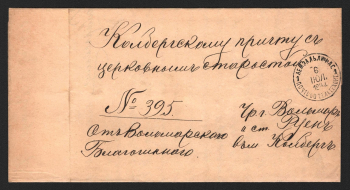 Колбергскому причту съ
церковнымъ старостой
№ 395.
Отъ Вольмарскаго
Благочиннаго
Чр. г. Вольмаръ
и ст. Руенъ
въ м. Колбергъ